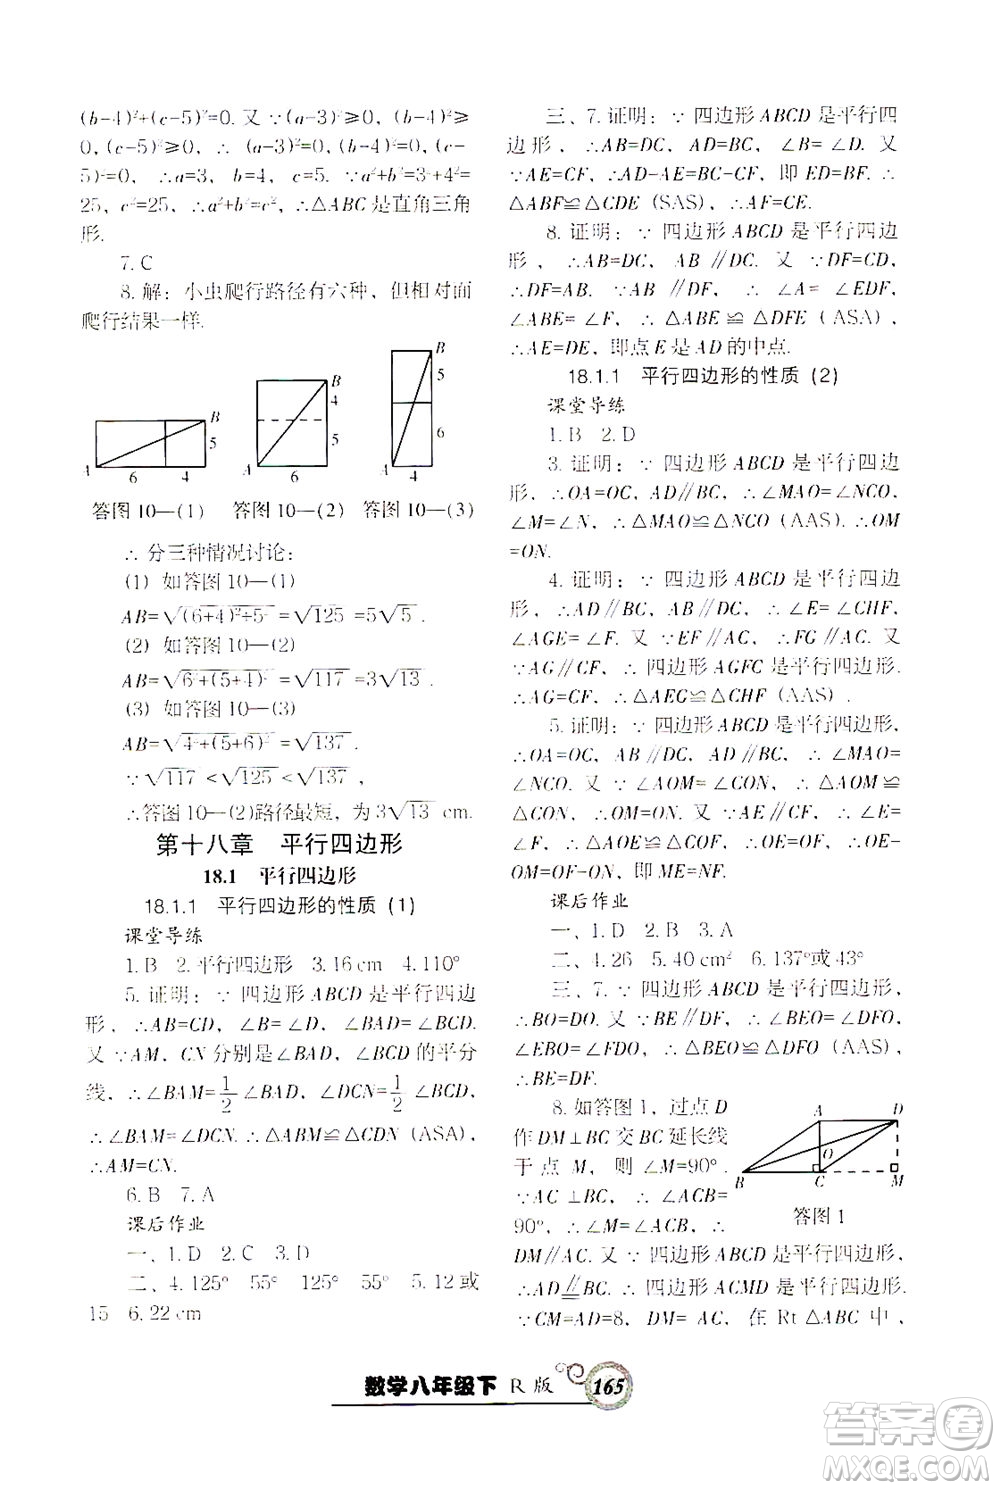 (b-4)²+(c-5)²=0. 又 ∵(a-3)²≥0, (b-4)²≥
0, (c-5)²≥0, ∴ (a-3)²=0, (b-4)²=0, (c-
5)²=0, ∴a=3, b=4, c=5. ∵a²+b²=3²+4²=
25, c²=25, ∴a²+b²=c², ∴△ABC是直角三角
形.
7. C
8. 解：小虫爬行路径有六种，但相对面
爬行结果一样.
B
5
A
6
4
B
4
5
A
6
B
5
6
A
4
答图 10—(1) 答图 10—(2) 答图 10—(3)
∴ 分三种情况讨论：
(1) 如答图 10—(1)
AB=√(6+4)²+5²=√125=5√5.
(2) 如答图 10—(2)
AB=√6²+(5+4)²=√117=3√13.
(3) 如答图 10—(3)
AB=√4²+(5+6)²=√137.
∵√117<√125<√137,
∴答图 10—(2)路径最短，为 3√13 cm.
第十八章 平行四边形
18.1 平行四边形
18.1.1 平行四边形的性质 (1)
课堂导练
1. B 2. 平行四边形 3. 16 cm 4. 110°
5. 证明：∵ 四边形 ABCD 是平行四边
形，∴AB=CD, ∠B=∠D, ∠BAD=∠BCD.
又 ∵AM, CN 分别是∠BAD, ∠BCD 的平分
线，∴∠BAM=1/2∠BAD, ∠DCN=1/2∠BCD,
∴∠BAM=∠DCN. ∴△BAM≌△CDN (ASA),
∴AM=CN.
6. B 7. A
课后作业
一、1. D 2. C 3. D
二、4. 125° 55° 125° 55° 5. 12 或
15 6. 22 cm
三、7. 证明：∵ 四边形 ABCD 是平行四
边形，∴AB=DC, AD=BC, ∠B=∠D. 又
∵AE=CF, ∴AD-AE=BC-CF, 即 ED=BF. ∴
△ABF≌△CDE (SAS), ∴AF=CE.
8. 证明：∵ 四边形 ABCD 是平行四边
形，∴AB=DC, AB∥DC. 又 ∵DF=CD,
∴DF=AB. ∵AB∥DF, ∴∠A=∠EDF,
∠ABE=∠F, ∴△ABE≌△DFE (ASA),
∴AE=DE, 即点 E 是 AD 的中点.
18.1.1 平行四边形的性质 (2)
课堂导练
1. B 2. D
3. 证明：∵ 四边形 ABCD 是平行四边
形，∴OA=OC, AD∥BC, ∴∠MAO=∠NCO,
∠M=∠N, ∴△MAO≌△NCO (AAS). ∴OM
=ON.
4. 证明：∵ 四边形 ABCD 是平行四边
形，∴AD∥BC, AB∥DC, ∴∠E=∠CHF,
∠AGE=∠F. 又 ∵EF∥AC, ∴FG∥AC. 又
∵AG∥CF, ∴ 四边形 AGFC 是平行四边形.
∴AG=CF, ∴△AEG≌△CHF (AAS).
5. 证明：∵ 四边形 ABCD 是平行四边形,
∴OA=OC, AB∥DC, AD∥BC, ∴∠MAO=
∠NCO. 又 ∵∠AOM=∠CON, ∴△AOM≌
△CON, ∴OM=ON. 又 ∵AE∥CF, ∴∠EAO
=∠FCO. 又 ∵∠AOE=∠COF, ∴△AOE≌
△COF, ∴OE=OF, ∴OE-OM=OF-ON, 即 ME=NF.
课后作业
一、1. D 2. B 3. A
二、4. 26 5. 40 cm² 6. 137°或 43°
三、7. ∵ 四边形 ABCD 是平行四边形,
∴BO=DO. 又 ∵BE∥DF, ∴∠BEO=∠DFO,
∠EBO=∠FDO, ∴△BEO≌△DFO (AAS),
∴BE=DF.
8. 如答图 1，过点 D
作 DM⊥BC 交 BC 延长线
于点 M, 则 ∠M=90°.
∵AC⊥BC, ∴∠ACB=
90°, ∴∠M=∠ACB, ∴
DM∥AC. 又 ∵ 四边形 ABCD 是平行四边形,
∴AD∥BC. ∴ 四边形 ACMD 是平行四边形.
∵CM=AD=8, DM=AC, 在 Rt △ABC 中,
A
D
O
B
C
M
答图 1
数学八年级下 R 版 165
答案卷
MXQE.COM